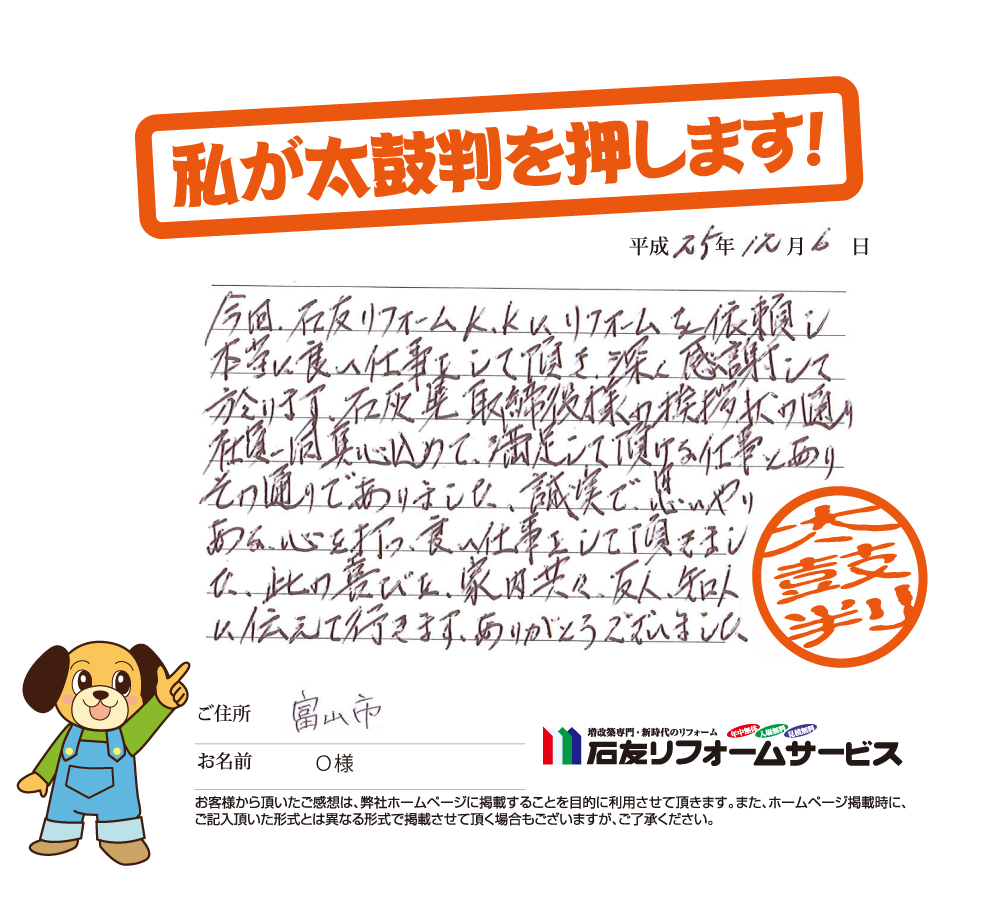 私が太鼓判を押します!
平成25年12月6日
今回、石友リフォームK.Kに、リフォームを依頼し
本当に良い仕事をして頂き、深く感謝して
於ります、石灰 取締役様の挨拶状の通り
社員一同真心込めて、満足して頂ける仕事とあり
その通りでありました、誠実で、思いやり
ある、心を打つ、良い仕事をして頂きまし
た、此の喜びを、家内共々、友人、知人
に伝えて行きます、ありがとうございました、
太鼓判
ご住所 富山市
お名前 O様
増改築専門・新時代のリフォーム 年中無休 入場無料 見積無料
石友リフォームサービス
お客様から頂いたご感想は、弊社ホームページに掲載することを目的に利用させて頂きます。また、ホームページ掲載時に、
ご記入頂いた形式とは異なる形式で掲載させて頂く場合もございますが、ご了承ください。